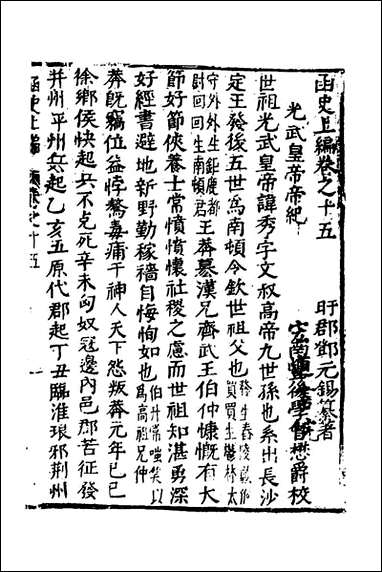 函史上編卷之十五
盱郡鄧元錫纂著
後學曾懋爵校
光武皇帝帝紀
世祖光武皇帝諱秀字文叔高帝九世孫也系出長沙
定王發後五世為南頓令欽世祖父也發生舂陵節侯買買生鬱林太
守外外生鉅鹿都尉回回生南頓君王莽篡漢兄齊武王伯仲慷慨有大
節好節俠養士常憤憤懷社稷之慮而世祖知湛勇深
好經書避地新野勤稼穡自悔恂如也伯升常嗤笑以為高祖兄仲
莽既竊位益悖驁毒痡干神人天下怨叛莽元年己巳
徐鄉侯快起兵不克死辛未匈奴寇邊內邑郡苦征發
并州平州兵起乙亥五原代郡起丁丑臨淮琅邪荆州
函史上編
十五